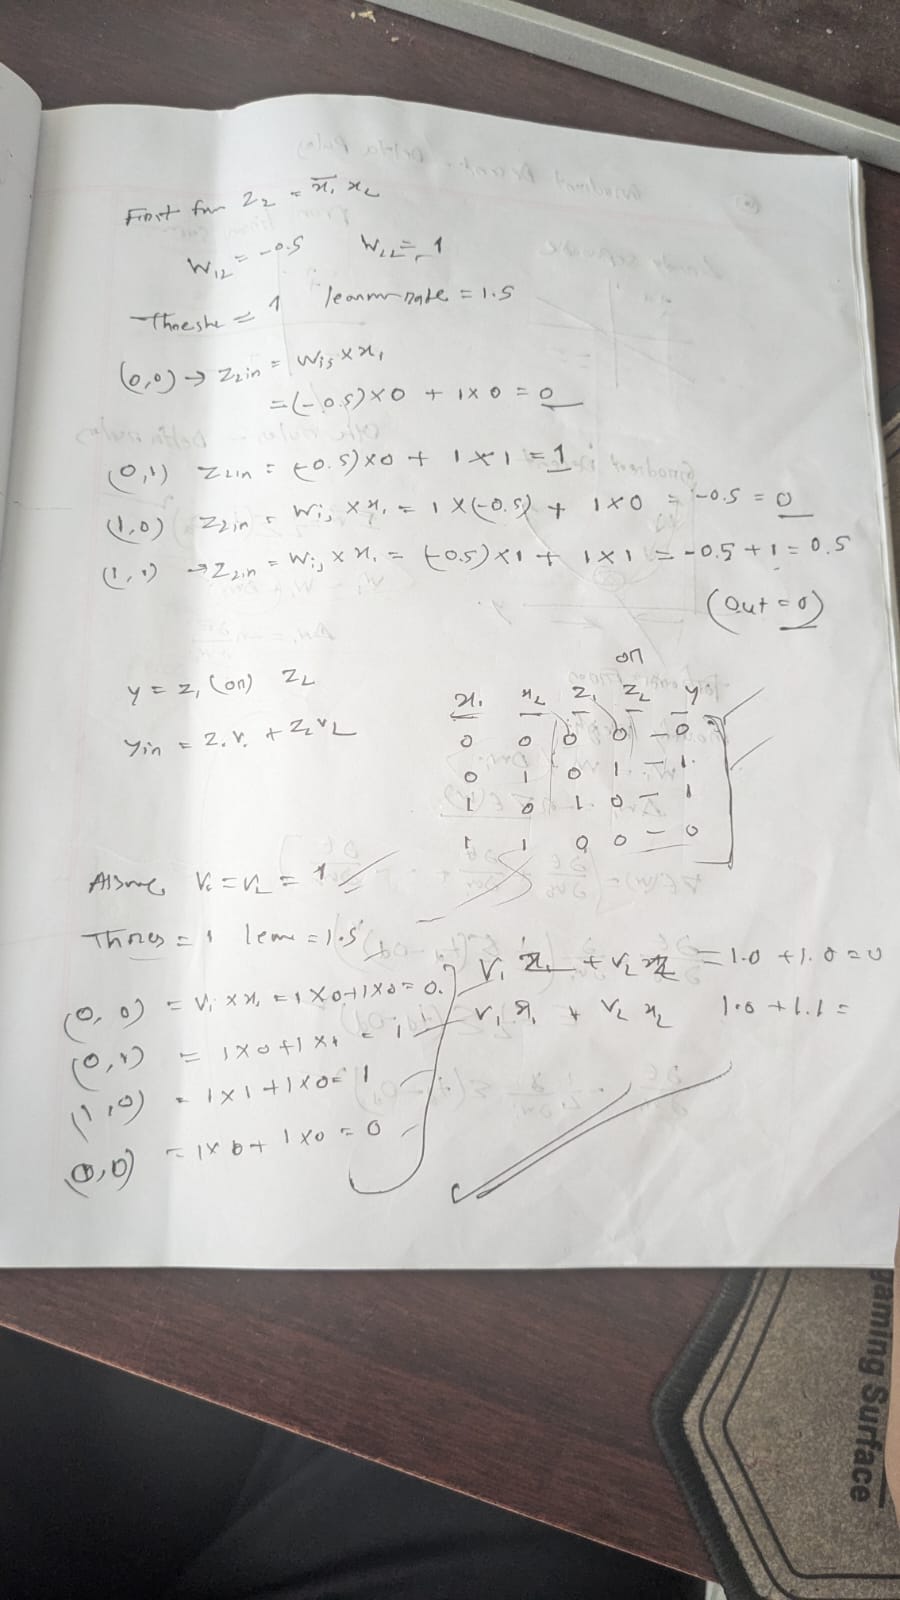 First for Z₂ = x̄₁ x₂
W₁₂ = -0.5 W₂₂ = 1
Threshe = 1 learning rate = 1.5
(0,0) → Z₂in = Wij × xi
= (-0.5)×0 + 1×0 = 0
(0,1) Z₂in = (-0.5)×0 + 1×1 = 1
(1,0) Z₂in = Wij × xi = 1×(-0.5) + 1×0 = -0.5 = 0
(1,1) → Z₂in = Wij × xi = (-0.5)×1 + 1×1 = -0.5 + 1 = 0.5
(Out = 0)
y = z₁ (or) z₂
Yin = Z₁V₁ + Z₂V₂
or
x₁ x₂ Z₁ Z₂ y
0 0 0 0 - 0
0 1 0 1 - 1
1 0 1 0 - 1
1 1 0 0 - 0
Assume, V₁ = V₂ = 1
Thres = 1 learn = 1.5
(0,0) = Vi × xi = 1×0+1×0 = 0. V₁ Z₁ + V₂ Z₂ = 1.0 + 1.0 = 0
(0,1) = 1×0+1×1 = 1 V₁ x₁ + V₂ x₂ 1.0 + 1.1 =
(1,0) = 1×1+1×0 = 1
(0,0) = 1×0 + 1×0 = 0
gaming Surface